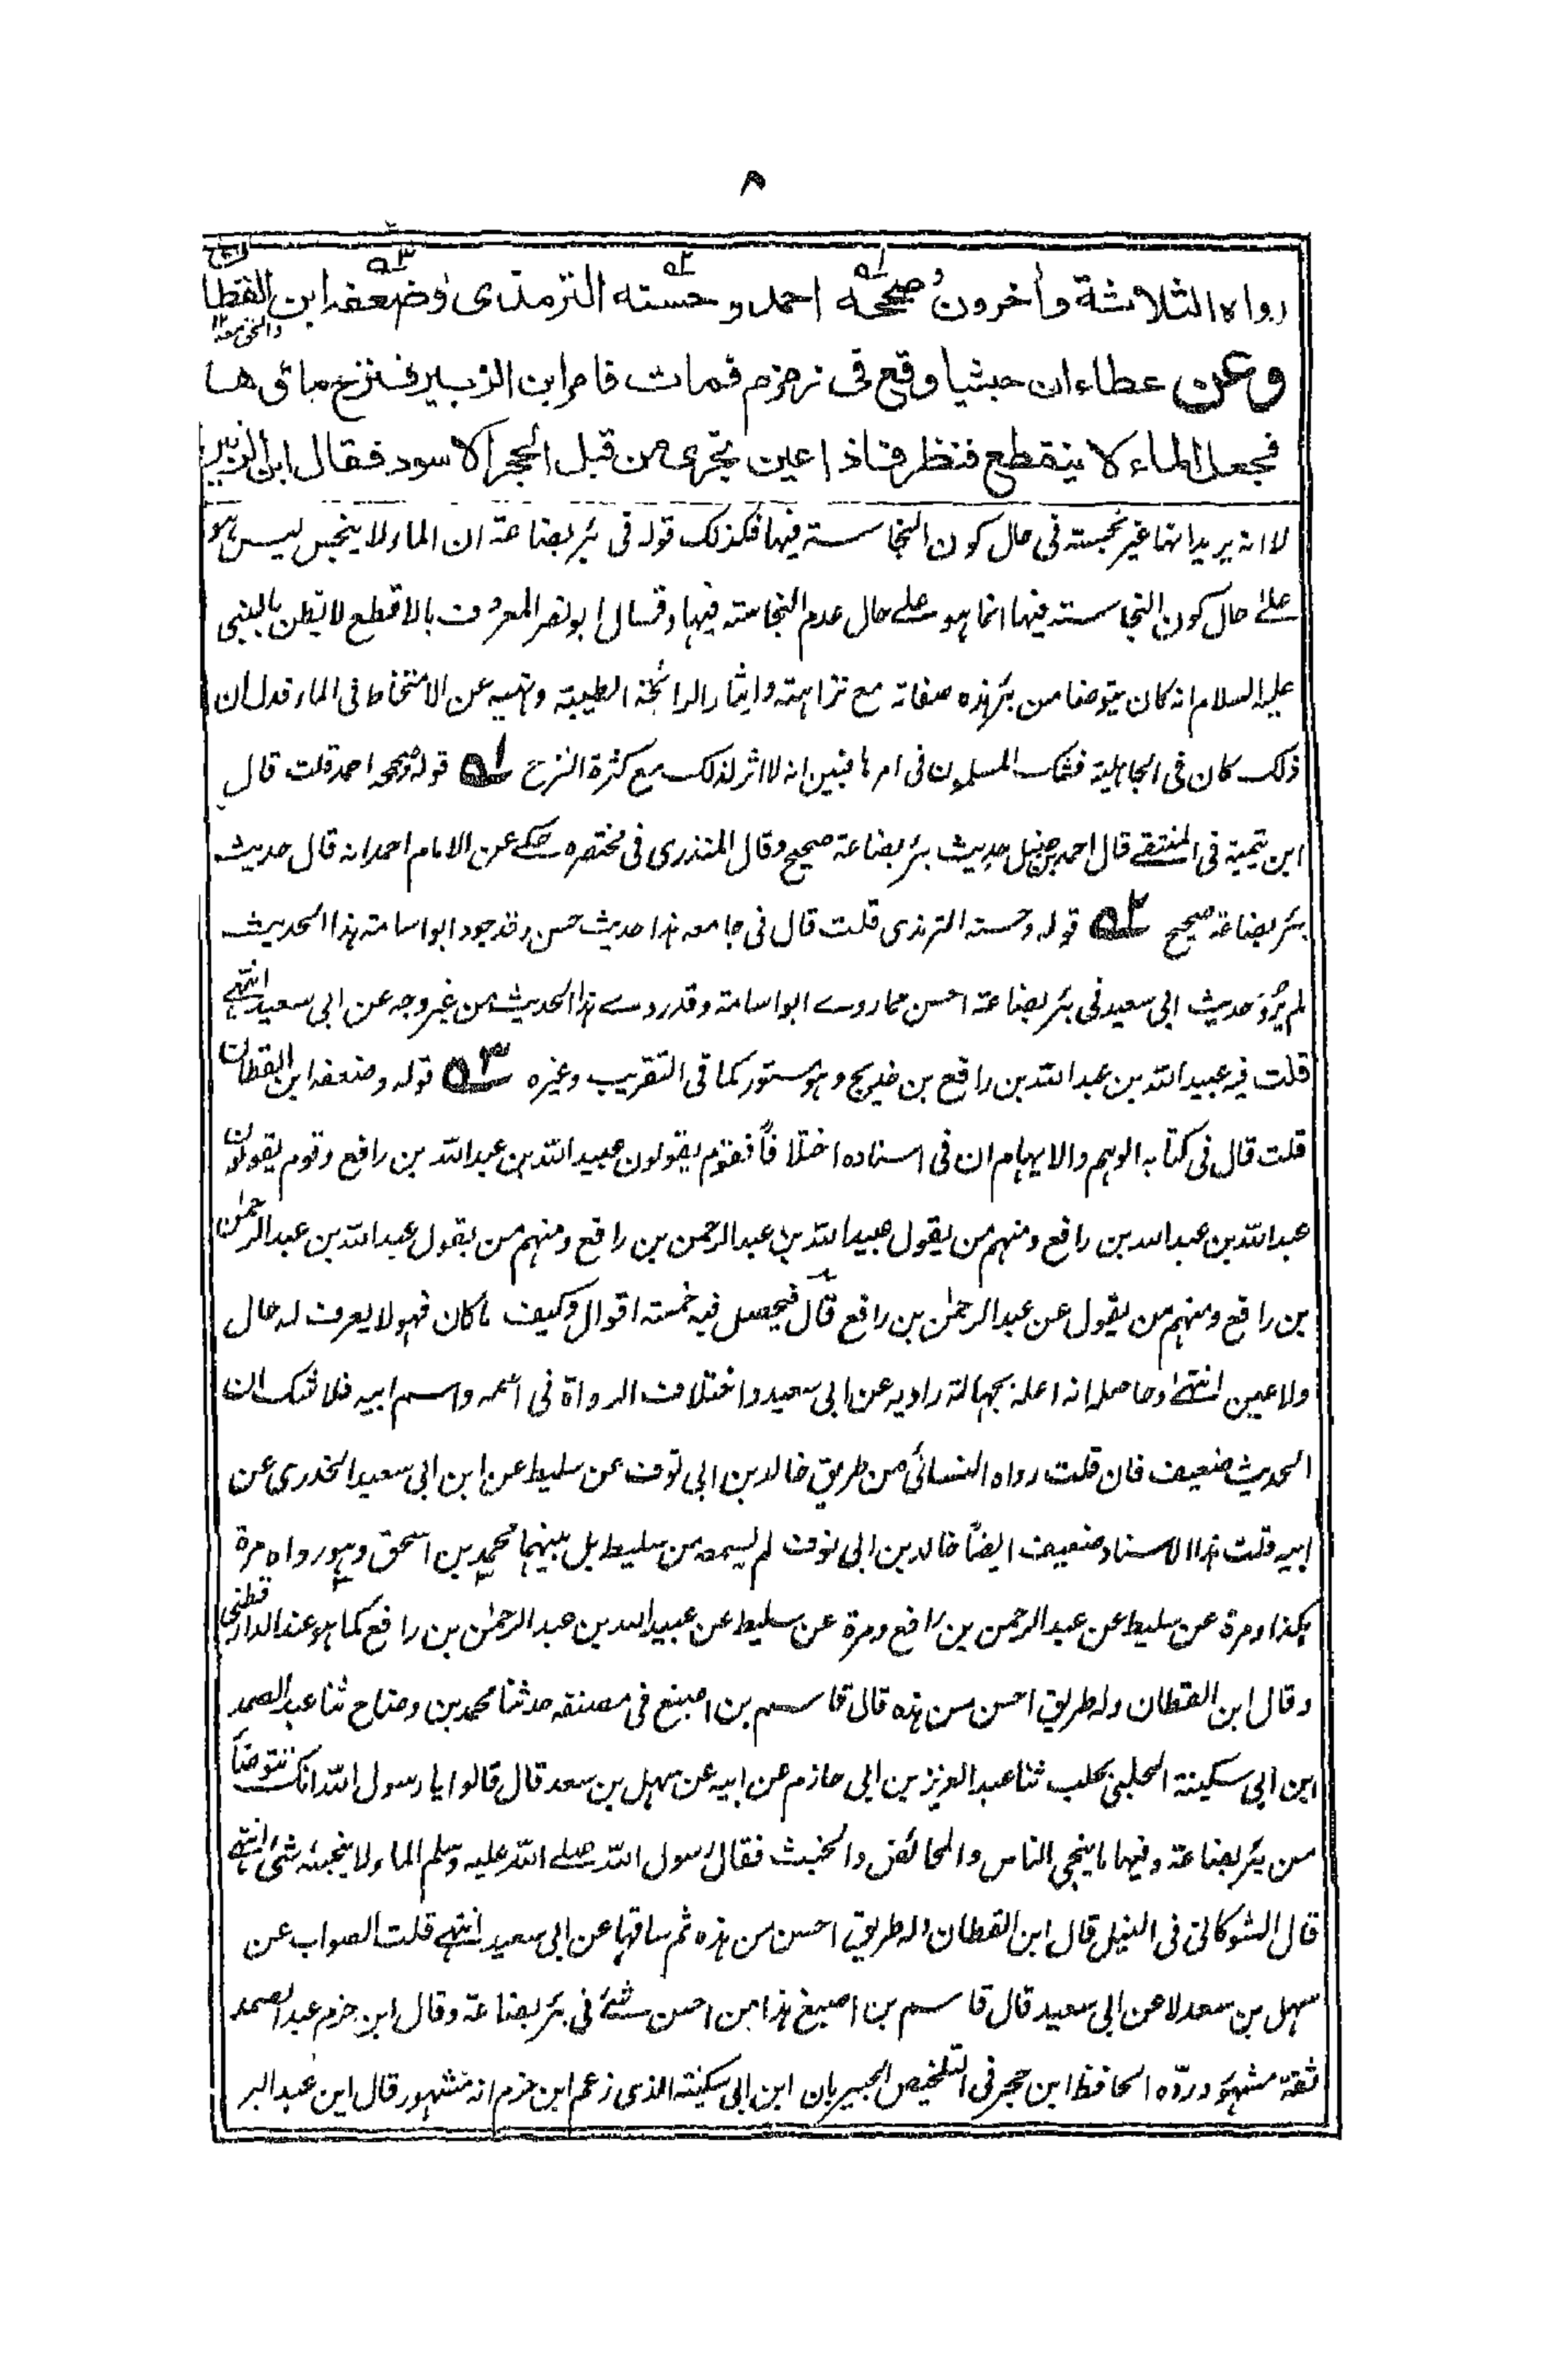 ٨
رواه الثلاثة وآخرون وصححه احمد وحسنه الترمذى وضعفه ابن القطان
وعن عطاء ان حبشيا وقع فى زمزم فمات فامر ابن الزبير فنزح ماؤها
فجعل الماء لا ينقطع فنظر فاذا عين تجرى من قبل الحجر الاسود فقال ابن الزبير
لا انه يريد انها غير نجسته فى حال كون النجاسته فيها فكذلك قوله فى بئر بضاعة ان الماء لا ينجس ليس هو
على حال كون النجاسته فيها انما هو على حال عدم النجاسته فيها وقال ابو نصر المعروف بالاقطع لا يظن بالنبى
عليه السلام انه كان يتوضا من بئر هذه صفاته مع نزاهته وايثار الرائحة الطيبة ونهيه عن الامتخاط فى الماء فدل ان
ذلك كان فى الجاهلية فشك المسلمون فى امرها فبين انه لا اثر لذلك مع كثرة النزح ١ه قوله وصححه احمد قلت قال
ابن تيمية فى المنتقى قال احمد بن حنبل حديث بئر بضاعة صحيح وقال المنذرى فى مختصره حكى عن الامام احمد انه قال حديث
بئر بضاعة صحيح ٢ه قوله وحسنه الترمذى قلت قال فى جامعه هذا حديث حسن وقد جود ابو اسامة هذا الحديث
لم يرو حديث ابى سعيد فى بئر بضاعة احسن مما روى ابو اسامة وقد روى هذا الحديث من غير وجه عن ابى سعيد انتهى
قلت فيه عبيد الله بن عبد الله بن رافع بن خديج وهو مستور كما فى التقريب وغيره ٣ه قوله وضعفه ابن القطان
قلت قال فى كتابه الوهم والايهام ان فى اسناده اختلافاً فقوم يقولون عبيد الله بن عبد الله بن رافع وقوم يقولون
عبد الله بن عبد الله بن رافع ومنهم من يقول عبيد الله بن عبد الرحمن بن رافع ومنهم من يقول عبد الله بن عبد الرحمٰن
بن رافع ومنهم من يقول عن عبد الرحمٰن بن رافع قال فيحصل فيه خمسته اقوال وكيف ما كان فهو لا يعرف له حال
ولا عين انتهى وحاصله انه اعله بجهالة راويه عن ابى سعيد واختلاف الرواة فى اسمه واسم ابيه فلا شك ان
الحديث ضعيف فان قلت رواه النسائى من طريق خالد بن ابى نوف عن سليط عن ابن ابى سعيد الخدرى عن
ابيه قلت هذا الاسناد ضعيف ايضاً خالد بن ابى نوف لم يسمعه من سليط بل بينهما محمد بن اسحق وهو رواه مرة
هكذا ومرة عن سليط عن عبد الرحمن بن رافع ومرة عن سليط عن عبيد الله بن عبد الرحمٰن بن رافع كما هو عند الدارقطنى
وقال ابن القطان وله طريق احسن من هذه قال قاسم بن اصبغ فى مصنفه حدثنا محمد بن وضاح ثنا عبد الصمد
ابن ابى سكينة الحلبى بحلب ثنا عبد العزيز بن ابى حازم عن ابيه عن سهل بن سعد قال قالوا يا رسول الله انك تتوضأ
من بئر بضاعة وفيها ما ينجى الناس والمحائض والخبث فقال رسول الله صلى الله عليه وسلم الماء لا ينجسه شئ انتهى
قال الشوكانى فى النيل قال ابن القطان وله طريق احسن من هذه ثم ساقها عن ابى سعيد انتهى قلت الصواب عن
سهل بن سعد لا عن ابى سعيد قال قاسم بن اصبغ هذا من احسن شئ فى بئر بضاعة وقال ابن حزم عبد الصمد
ثقة مشهور وردّه الحافظ ابن حجر فى التلخيص الحبير بان ابن ابى سكينة الذى زعم ابن حزم انه مشهور قال ابن عبد البر